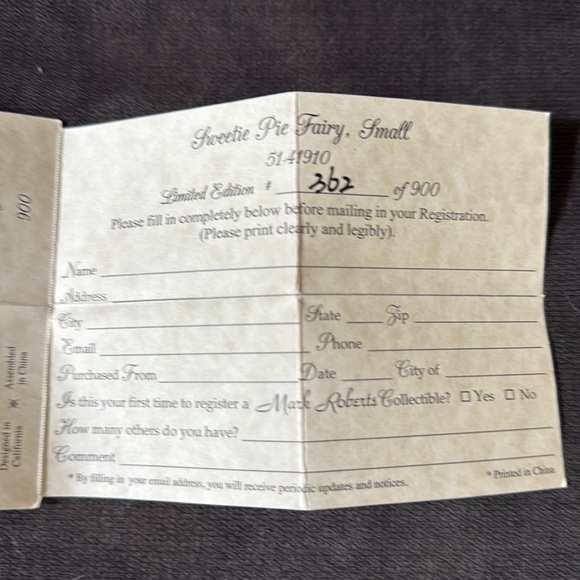 Sweetie Pie Fairy, Small
51-41910
Limited Edition # 362 of 900
Please fill in completely below before mailing in your Registration.
(Please print clearly and legibly).
Name
Address
City State Zip
Email Phone
Purchased From Date City of
Is this your first time to register a Mark Roberts Collectible? ☐ Yes ☐ No
How many others do you have?
Comment
* By filling in your email address, you will receive periodic updates and notices.
* Printed in China
900
Designed in
California
* Assembled
in China